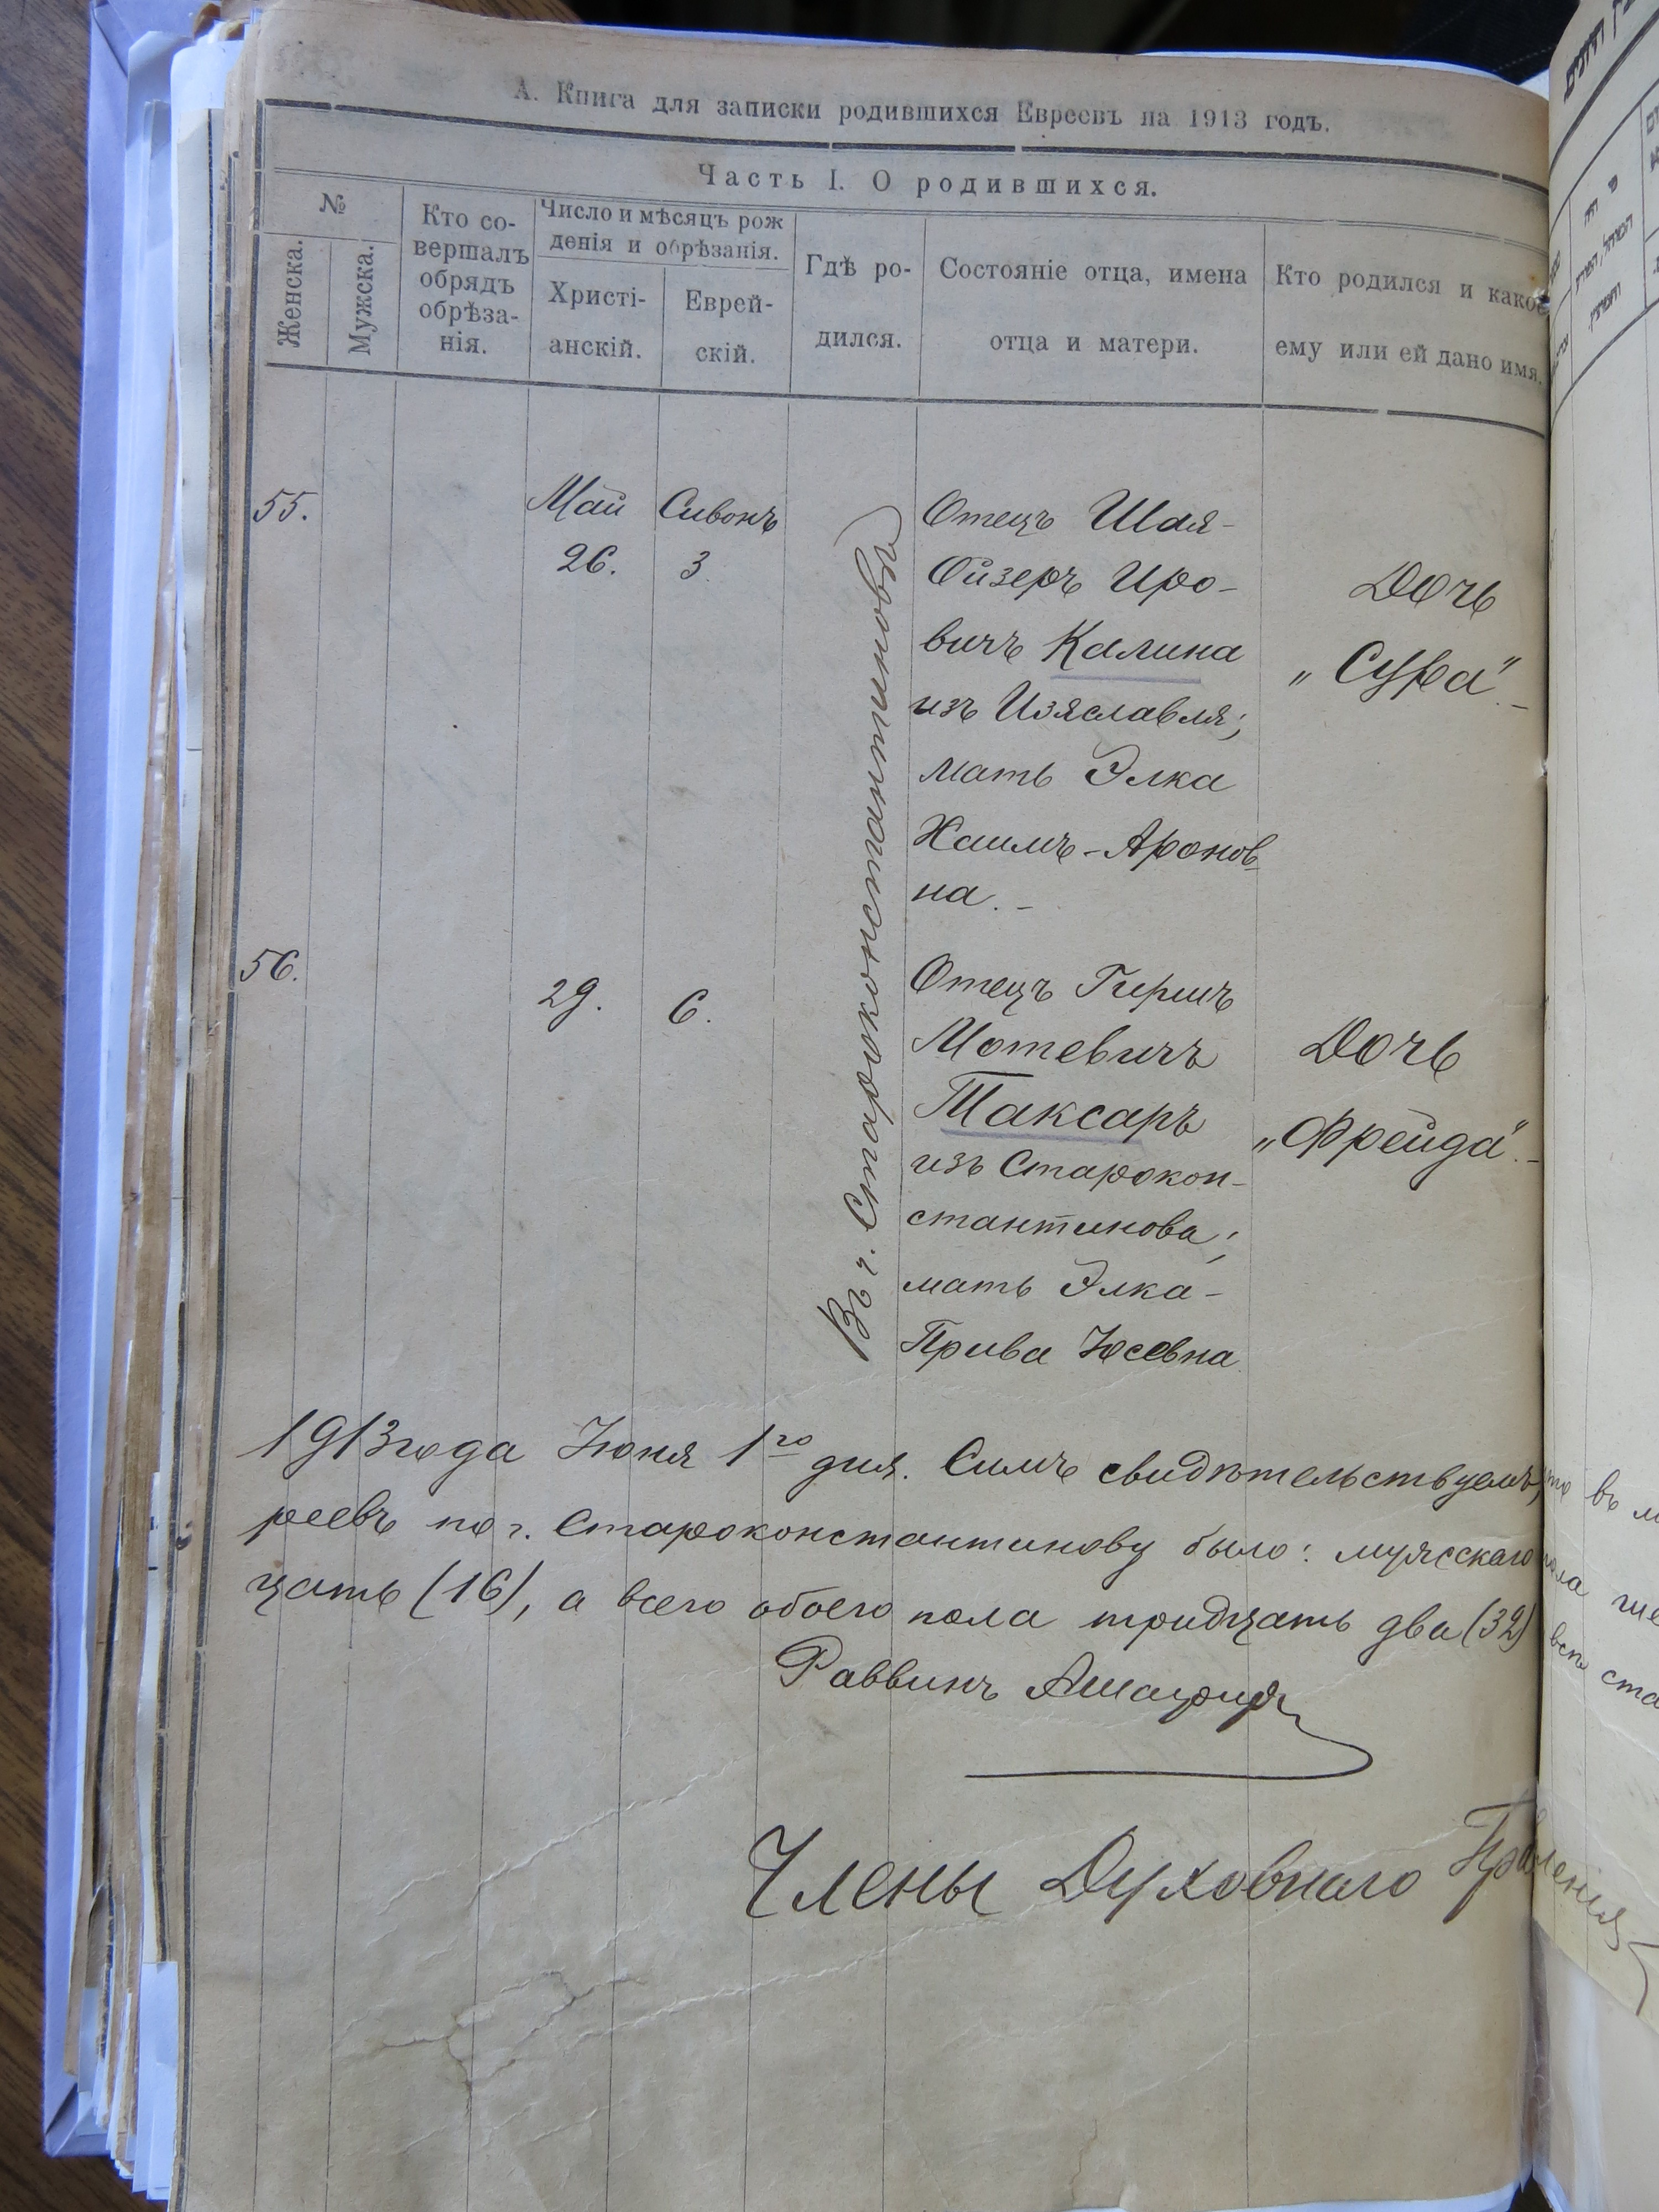 А. Книга для записки родившихся Евреевъ на 1913 годъ.
Часть I. О родившихся.
№
Женска.
Мужска.
Кто со-
вершалъ
обрядъ
обрѣза-
нія.
Число и мѣсяцъ рож
денія и обрѣзанія.
Христі-
анскій.
Еврей-
скій.
Гдѣ ро-
дился.
Состояніе отца, имена
отца и матери.
Кто родился и какое
ему или ей дано имя.
55.
Май
26.
Сивонъ
3.
Въ г. Староконстантиновѣ
Отецъ Шая-
Ойзеръ Иро-
вичъ Калина
изъ Изяславля;
мать Элка
Хаимъ-Аронов-
на. -
Дочь
„Сура". -
56.
29.
6.
Отецъ Гершъ
Мотевичъ
Таксаръ
изъ Старокон-
стантинова;
мать Элка-
Прива Юсевна
Дочь
„Фрейда". -
1913 года Июня 1го дня. Симъ свидѣтельствуемъ, что въ
реевъ по г. Староконстантинову было: мужсскаго пола
цать (16), а всего обоего пола тридцать два (32)
Раввинъ
Члены Духовнаго Правленія